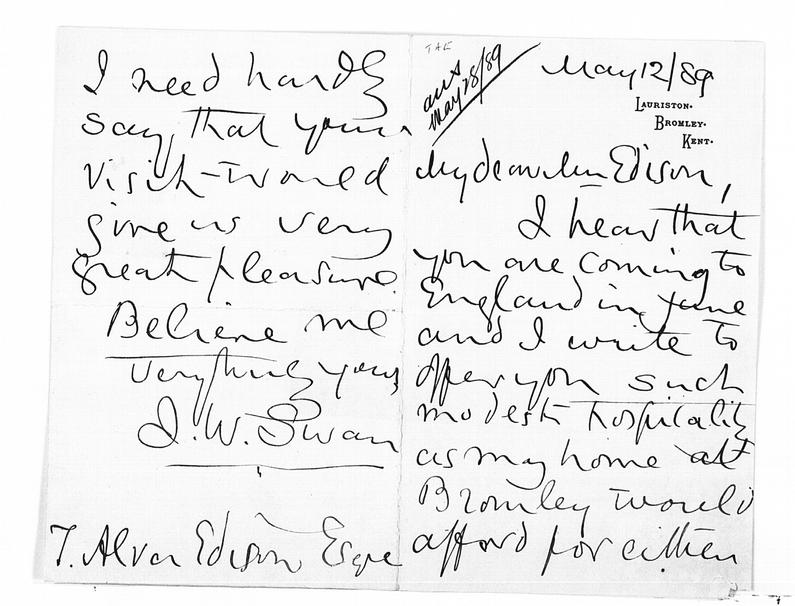 TAE
ans
May 28/89
May 12/89
LAURISTON.
BROMLEY.
KENT.
My dear Mr Edison,
I hear that
you are coming to
England in June
and I write to
offer you such
modest hospitality
as my home at
Bromley would
afford for either
I need hardly
say, that your
visit would
give us very
great pleasure.
Believe me
Very truly yours
J. W. Swan
T. Alva Edison Esqre